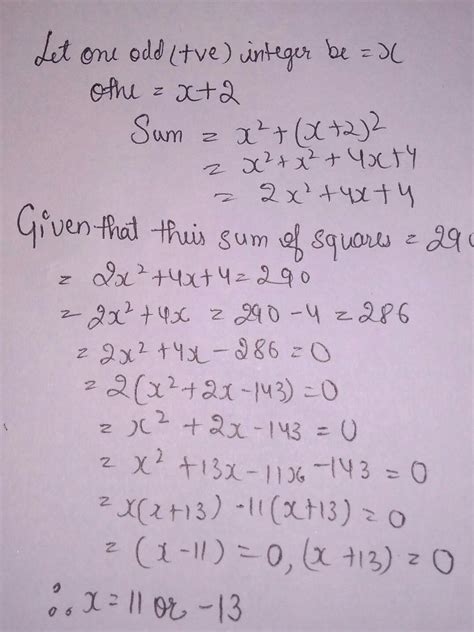 Let one odd (+ve) integer be = x
Othe = x+2
Sum = x² + (x+2)²
= x² + x² + 4x + 4
= 2x² + 4x + 4
Given that theis sum of squares = 290
= 2x² + 4x + 4 = 290
= 2x² + 4x = 290 - 4 = 286
= 2x² + 4x - 286 = 0
= 2(x² + 2x - 143) = 0
= x² + 2x - 143 = 0
= x² + 13x - 11x - 143 = 0
= x(x+13) - 11(x+13) = 0
= (x-11) = 0, (x+13) = 0
∴ x = 11 or -13